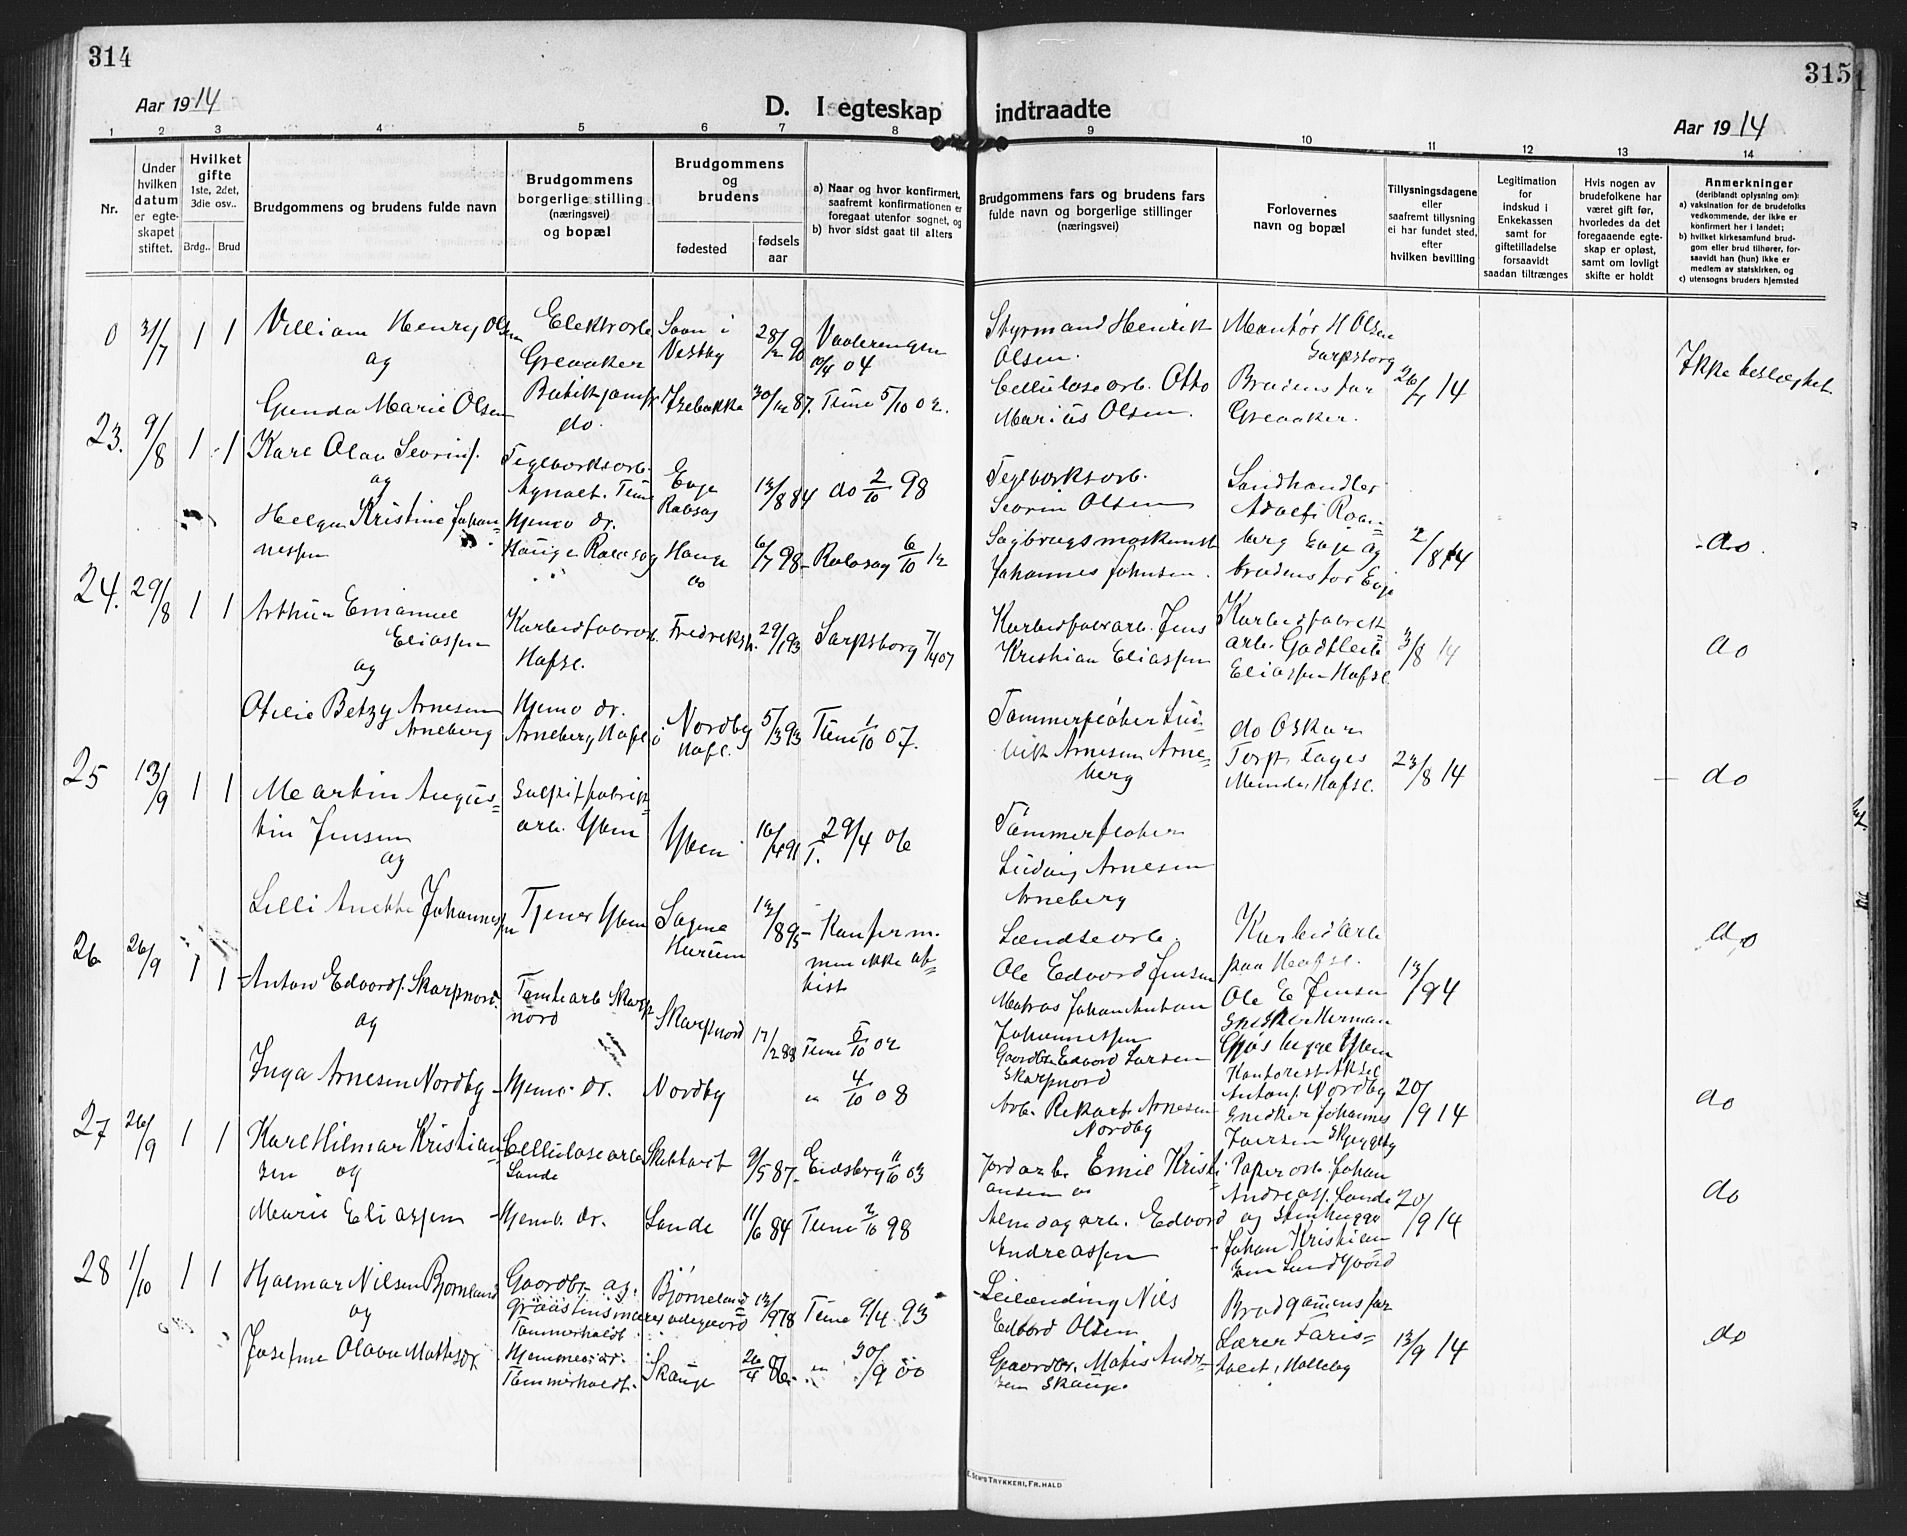 314
Aar 1914
D. I egteskap indtraadte
315
Aar 1914
1 2 3 4 5 6 7 8 9 10 11 12 13 14
Nr.
Under hvilken datum er egteskapet stiftet.
Hvilket gifte 1ste, 2det, 3die osv..
Brdg.. Brud
Brudgommens og brudens fulde navn
Brudgommens borgerlige stilling (næringsvei) og bopæl
Brudgommens og brudens
fødested
fødsels aar
a) Naar og hvor konfirmert, saafremt konfirmationen er foregaat utenfor sognet, og
b) hvor sidst gaat til alters
Brudgommens fars og brudens fars fulde navn og borgerlige stillinger (næringsvei)
Forlovernes navn og bopæl
Tillysningsdagene eller saafremt tillysning ei har fundet sted, efter hvilken bevilling
Legitimation for indskud i Enkekassen samt for giftetilladelse forsaavidt saadan tiltrænges
Hvis nogen av brudefolkene har været gift før, hvorledes da det foregaaende egteskap er opløst, samt om lovligt skifte er holdt
Anmerkninger (deriblandt oplysning om):
a) vaksination for de brudefolks vedkommende, der ikke er konfirmert her i landet;
b) hvilket kirkesamfund brudgom eller brud tilhører, forsaavidt han (hun) ikke er medlem av statskirken, og
c) utensogns bruders hjemsted
0 31/7 1 1 Villiam Henry Olsen Elektroarb. Soon i 28/2 90 Vaalerengen Styrmand Henrik Montør H Olsen
og Greaaker Vestby 10/4 04 Olsen. Sarpsborg 26/7 14 Ikke beslegtet
Gunda Marie Olsen Butikjomfr Isebakke 30/12 87. Tune 5/10 02. Cellulosearb. Otto Brudens far
do. Marius Olsen. Greaaker.
23. 9/8 1 1 Karl Olav Sevrins. Teglverksarb. Enge 13/8 84 do 2/10 98 Teglverksarb. Landhandler
og Agnalt. Tune Rolvsøy Sevrin Olsen Adolf Roen=
Helga Kristine Johan= Hjemv dr. Hauge 6/7 98- Rolvsøy 6/10 12 Sagbrugsmaskinist berg Enge og 2/8 14 do.
nessen Hauge Rolvsøy do Johannes Johnsen. brudens far Enge
24. 29/8 1 1 Arthur Emanuel Karbidfabrarb. Fredrikst. 29/1 93 Sarpsborg 7/4 07 Karbidfabrarb. Jens Karbidfabrikk=
Eliassen Hafsl. Kristian Eliassen arb. Godtlieb 3/8 14 do
og Eliassen Hafsl.
Otelie Betzy Arnesen Hjemv dr. Nordby 5/3 93 Tune 1/10 07. Tømmerfløter Lud- do Oskar
Arneberg Arneberg Hafsl. i Hafsl. vik Arnesen Arne= Torp, Fages 23/8 14
berg Minde, Hafsl.
25 13/9 1 1 Martin Augus= Salpitfabrik= Yven 16/4 91 T. 29/4 06 Tømmerfløter do
tin Jensen arb. Yven Ludvig Arnesen
og Arneberg
Lilli Anekke Johannessen Tjener Yven Sagene 13/8 95- Konferm. Landsearb. Karbidarb
Hurum men ikke at= Ole Edvard Jensen paa Hafsl. 13/9 4 do
tist Matros Johan Anton Ole E Jensen
26 26/9 1 1 Anton Edvards. Skarpnord. Tomtearb Skarp= Skarpnord 17/2 88 Tune 5/10 02 Johannessen Snekker Herman
og nord Gaardbr. Edvard Larsen Yven
Skarpnord Kontorist Aksel
Inga Arnesen Nordby Hjemv. dr. Nordby " 4/10 08 Arb. Rikard Arnesen Antons. Nordby 20/9 14 do
Nordby Snedker Johannes
27 26/9 1 1 Karl Hilmar Kristian= Cellulosearb Skibtvet 9/5 87- Eidsberg 11/10 03 Jordarb. Emil Kristi= Iversen Skjeggeby
sen og Sande ansen do Papirarb. Johan
Marie Eliassen Hjemv. dr. Sande 11/6 84 Tune 2/10 98 Edvard Andreass. Sande 20/9 14 do
Andreassen og Stenhugger
Johan Kristian
28 1/10 1 1 Hjalmar Nilsen Bjørneland Gaardbr. og Bjørneland 13/9 78 Tune 9/4 93 Leilending Nils Brudgomens far
og Edvard Olsen Lærer Faris= 13/9 14 do
Josefine Olava Mattisdr Hjemmevær. Skauge 26/4 86. " 30/9 00 Gaardbr. Matis Ander= tvet, Holleby
Tømmerholdt. sen Skauge.
E. SEM'S TRYKKERI, FR.HALD